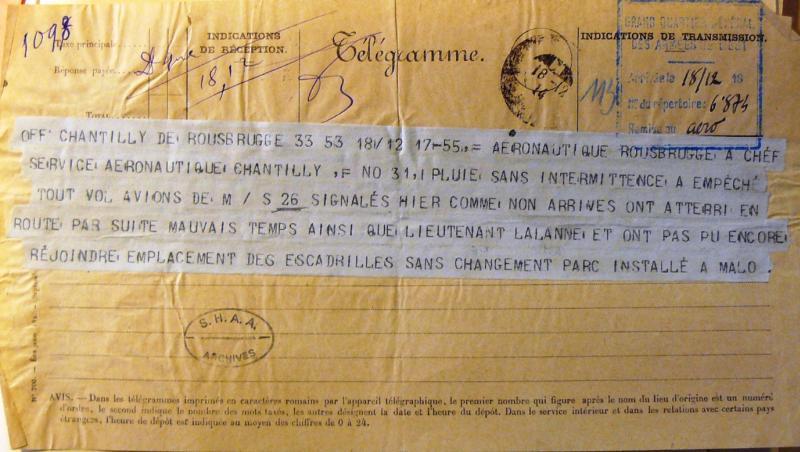 1098
INDICATIONS
DE RÉCEPTION.
Télégramme.
INDICATIONS DE TRANSMISSION.
Taxe principale
Réponse payée
18/12
Total
18
14
GRAND QUARTIER GÉNÉRAL
DES ARMÉES DE L'EST
Arrivée le 18/12 19
N° du répertoire 6874
Remise au aero
OFF CHANTILLY DE ROUSBRUGGE 33 53 18 12 17-55 = AERONAUTIQUE ROUSBRUGGE A CHEF
SERVICE AERONAUTIQUE CHANTILLY , = NO 31, PLUIE SANS INTERMITTENCE A EMPÊCHÉ
TOUT VOL AVIONS DE M / S 26 SIGNALÉS HIER COMME NON ARRIVES ONT ATTERRI EN
ROUTE PAR SUITE MAUVAIS TEMPS AINSI QUE LIEUTENANT LALANNE ET ONT PAS PU ENCORE
RÉJOINDRE EMPLACEMENT DES ESCADRILLES SANS CHANGEMENT PARC INSTALLÉ A MALO .
S.H.A.A.
ARCHIVES
N° 700.
AVIS. — Dans les télégrammes imprimés en caractères romains par l'appareil télégraphique, le premier nombre qui figure après le nom du lieu d'origine est un numéro
d'ordre, le second indique le nombre des mots taxés, les autres désignent la date et l'heure du dépôt. Dans le service intérieur et dans les relations avec certains pays
étrangers, l'heure de dépôt est indiquée au moyen des chiffres de 0 à 24.